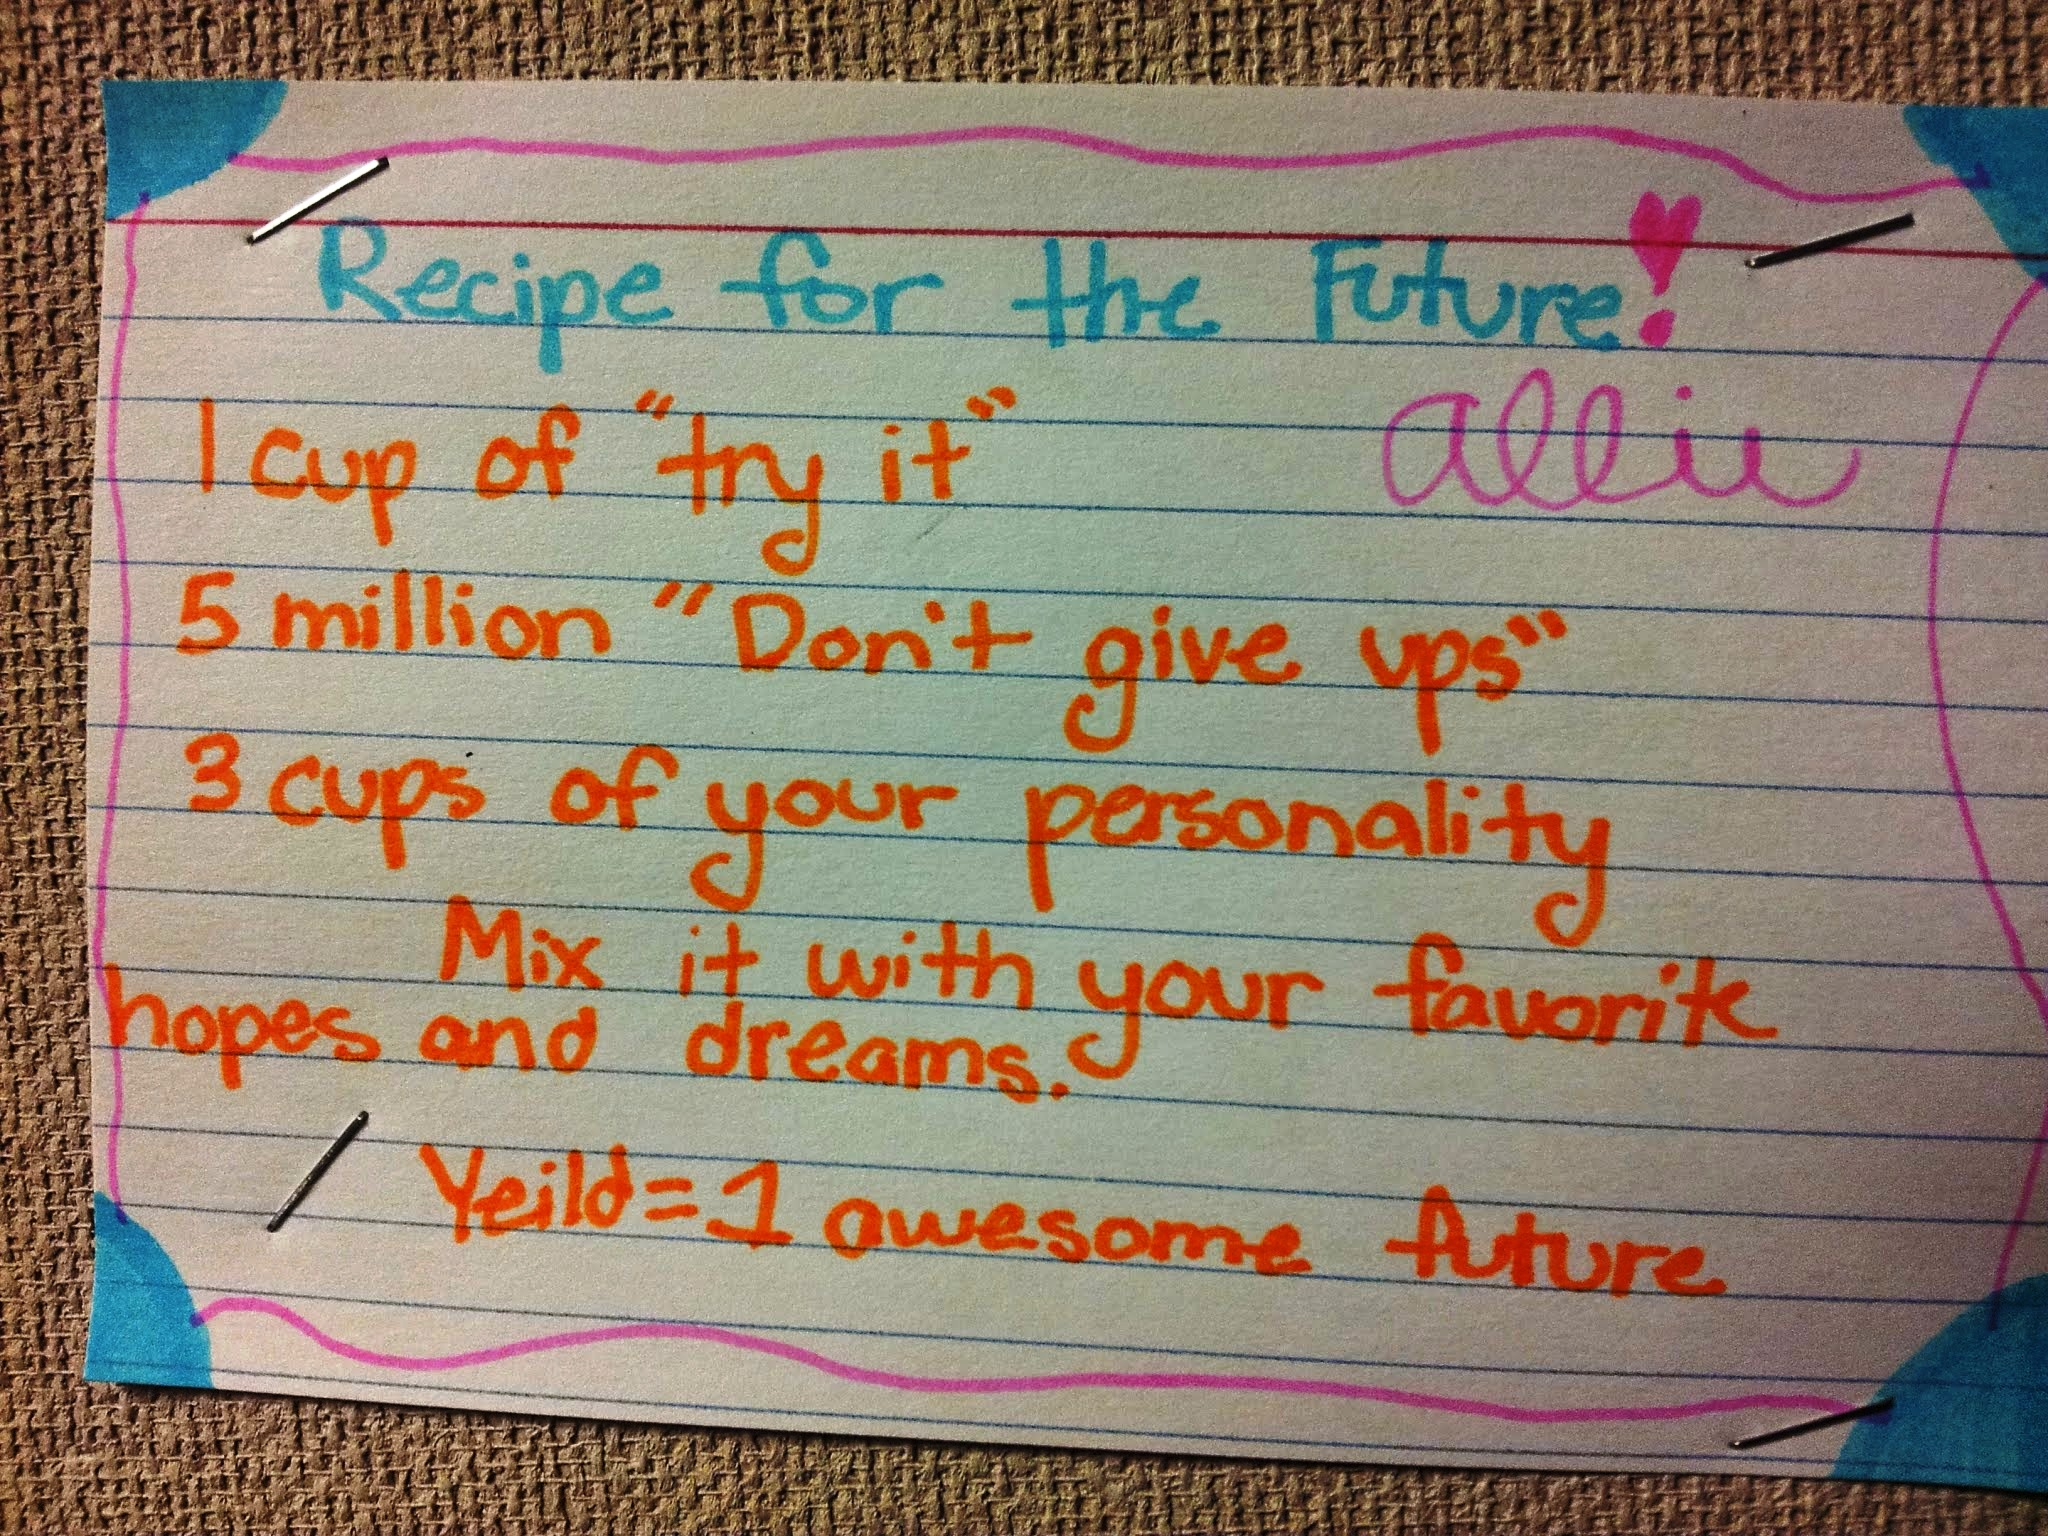 Recipe for the Future!
allie
1 cup of "try it"
5 million "Don't give ups"
3 cups of your personality
Mix it with your favorite
hopes and dreams.
Yeild=1 awesome future